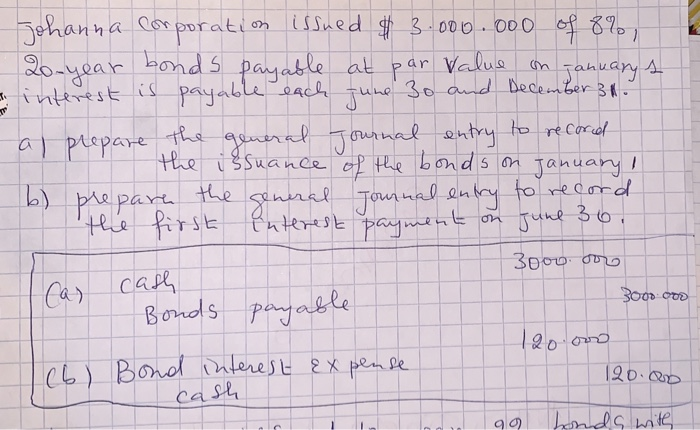 Johanna Corporation issued $ 3.000.000 of 8%,
20-year bonds payable at par value on January 1
interest is payable each June 30 and December 31.
a) prepare the general Journal entry to record
the issuance of the bonds on January 1
b) prepare the general Journal entry to record
the first interest payment on June 30.
(a) cash 3000.000
Bonds payable 3000.000
(b) Bond interest expense 120.000
cash 120.000
99 bonds with